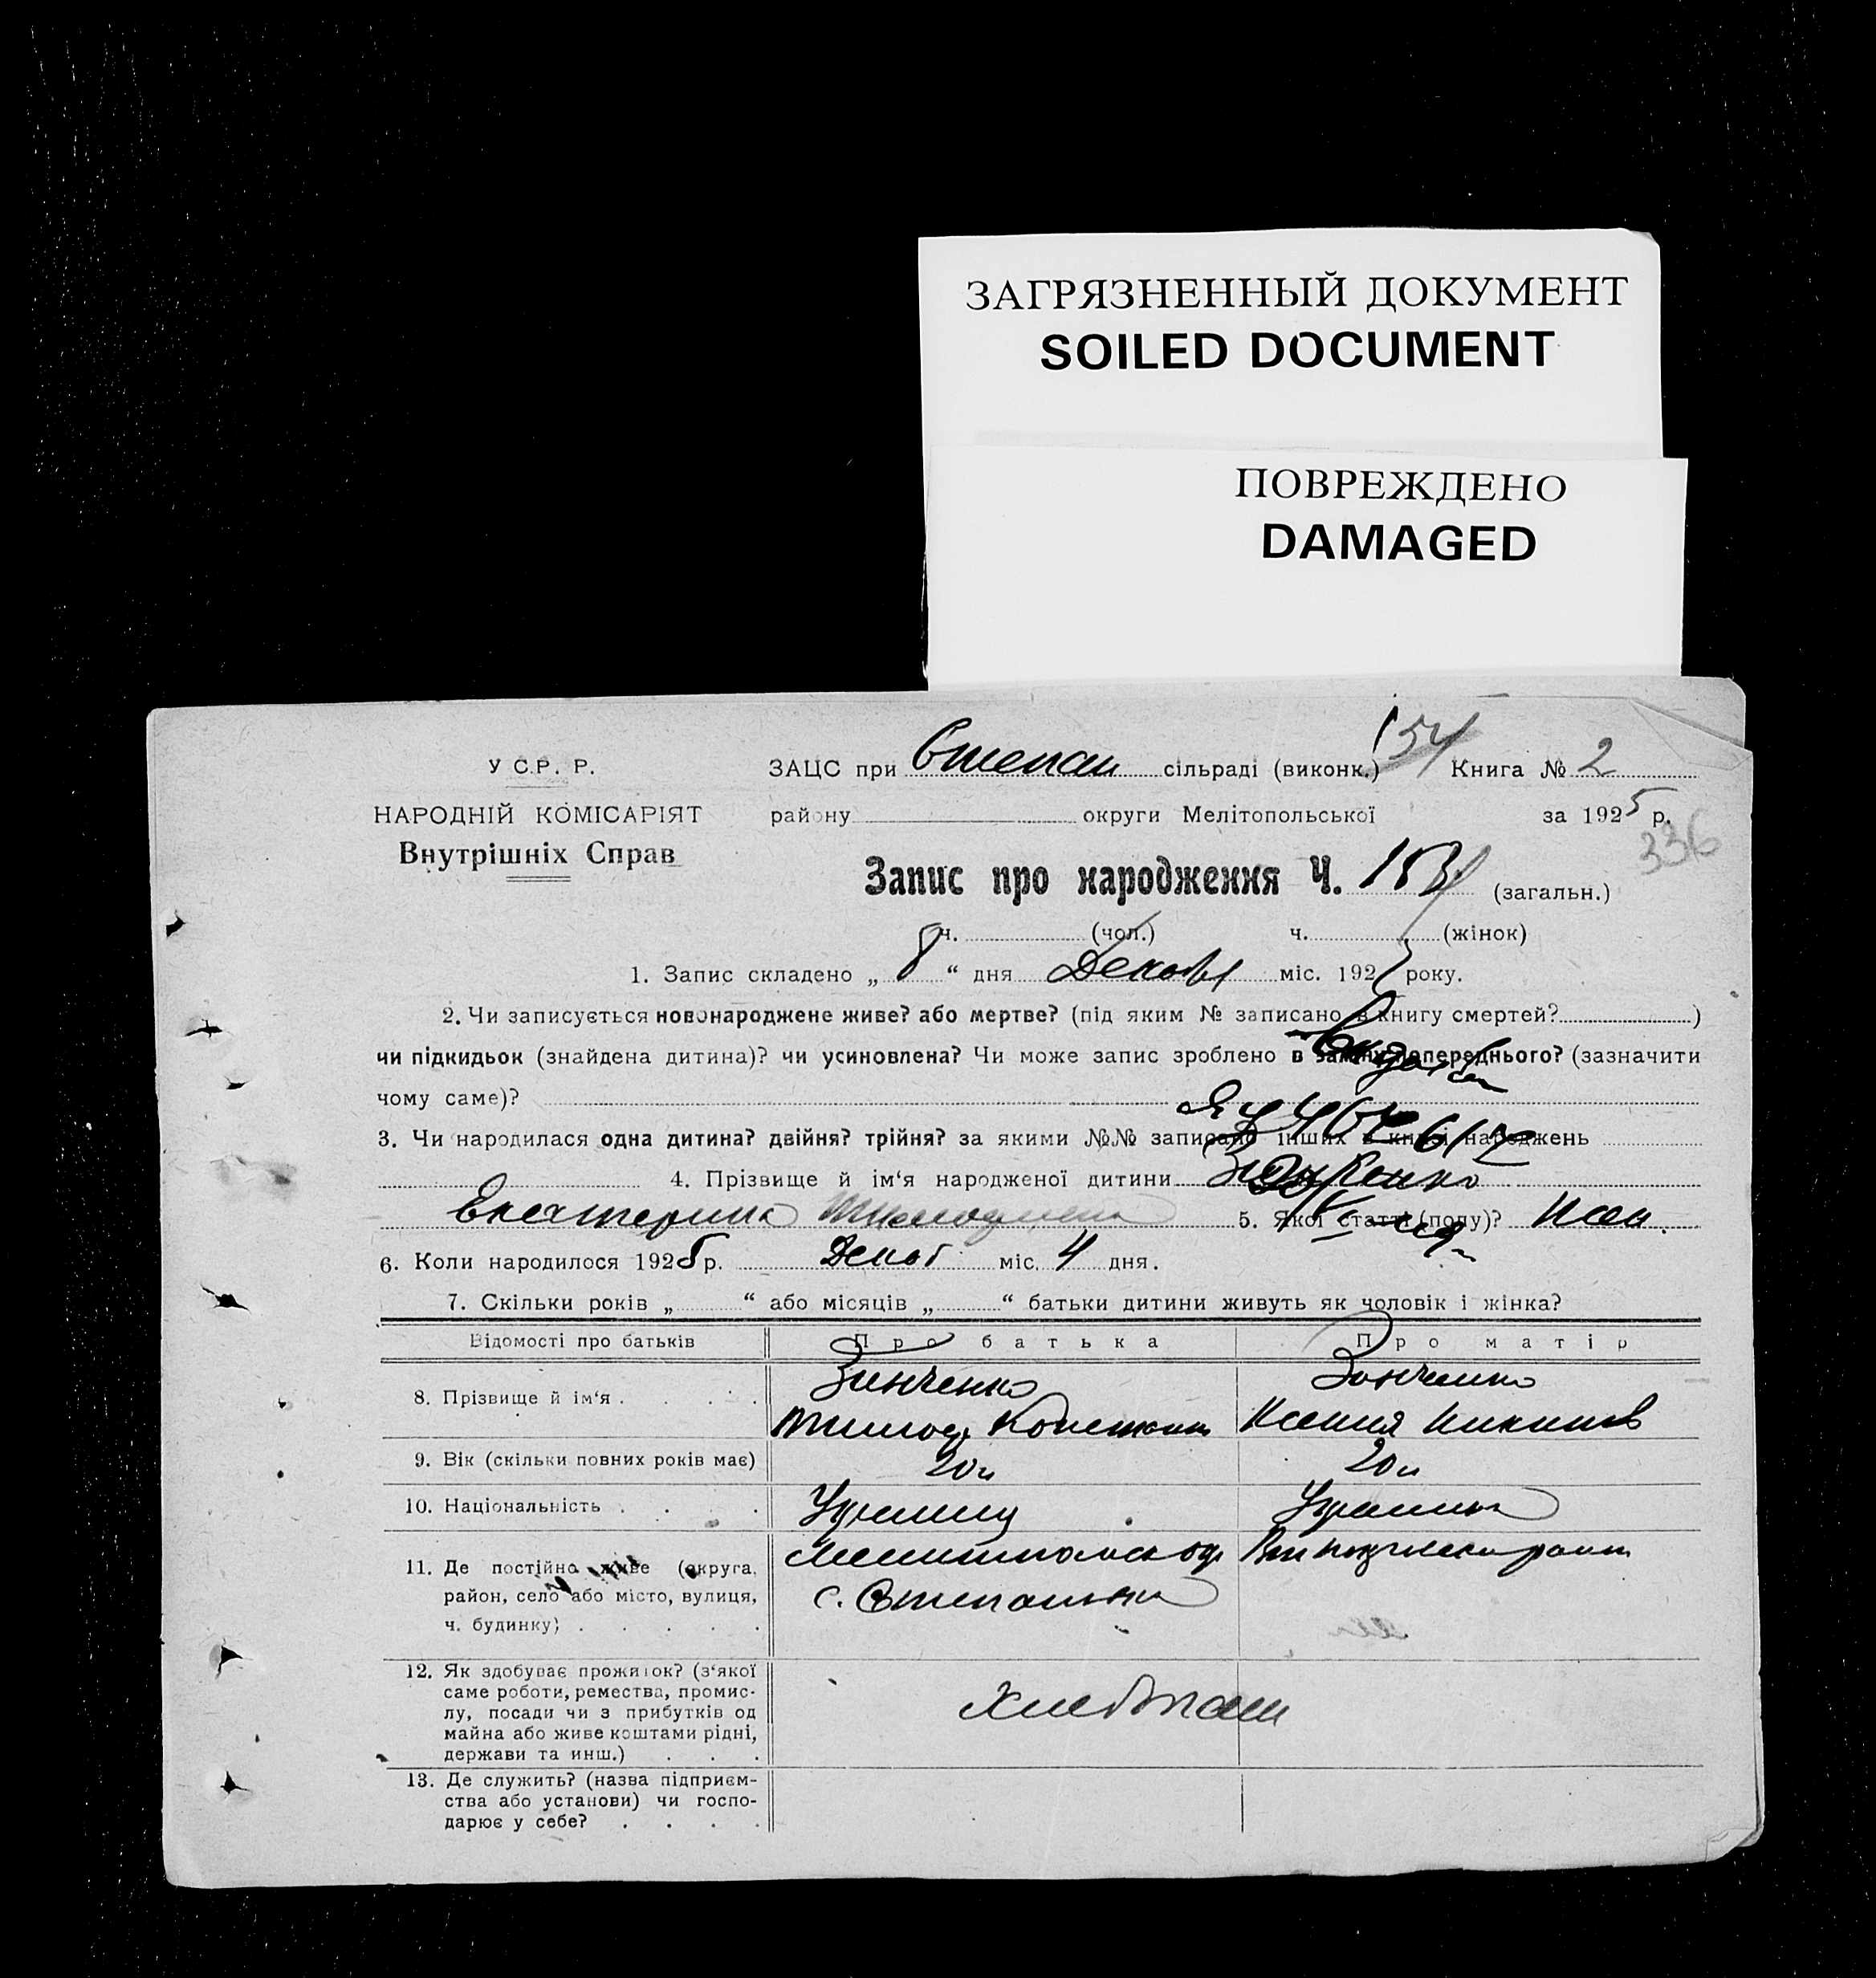 ЗАГРЯЗНЕННЫЙ ДОКУМЕНТ
SOILED DOCUMENT
ПОВРЕЖДЕНО
DAMAGED
154
У С.Р. Р. ЗАЦС при Степан сільраді (виконк.) Книга № 2
НАРОДНІЙ КОМІСАРІЯТ району округи Мелітопольської за 1925 р.
336
Внутрішніх Справ
Запис про народження Ч. (загальн.)
ч. (чол.) ч. (жінок)
1. Запис складено „ 8 “ дня Декабр міс. 192 року.
2. Чи записується новонароджене живе? або мертве? (під яким № записано в книгу смертей? )
чи підкидьок (знайдена дитина)? чи усиновлена? Чи може запис зроблено в заміну попереднього? (зазначити
чому саме)?
3. Чи народилася одна дитина? двійня? трійня? за якими №№ записано інших в книзі народжень
4. Прізвище й ім‘я народженої дитини Зинченко
Екатерина 5. Якої статті (полу)? Жен.
6. Коли народилося 1925 р. Декаб міс. 4 дня.
7. Скільки років „ “ або місяців „ “ батьки дитини живуть як чоловік і жінка?
Відомості про батьків Про батька Про матір
8. Прізвище й ім‘я . . . . Зинченко Зинченко
Тимоф. Констант Ксения Никитов
9. Вік (скільки повних років має) 20 л 20 л
10. Національність . . . Украинц Украинка
11. Де постійно живе (округа, район, село або місто, вулиця, ч. будинку) . . . . . Мелитопольск окр
с. Степановка
12. Як здобуває прожиток? (з‘якої
саме роботи, ремества, промис-
лу, посади чи з прибутків од
майна або живе коштами рідні,
держави та инш.) . . . Хлебопаш
13. Де служить? (назва підприєм-
ства або установи) чи госпо-
дарює у себе? . . . .